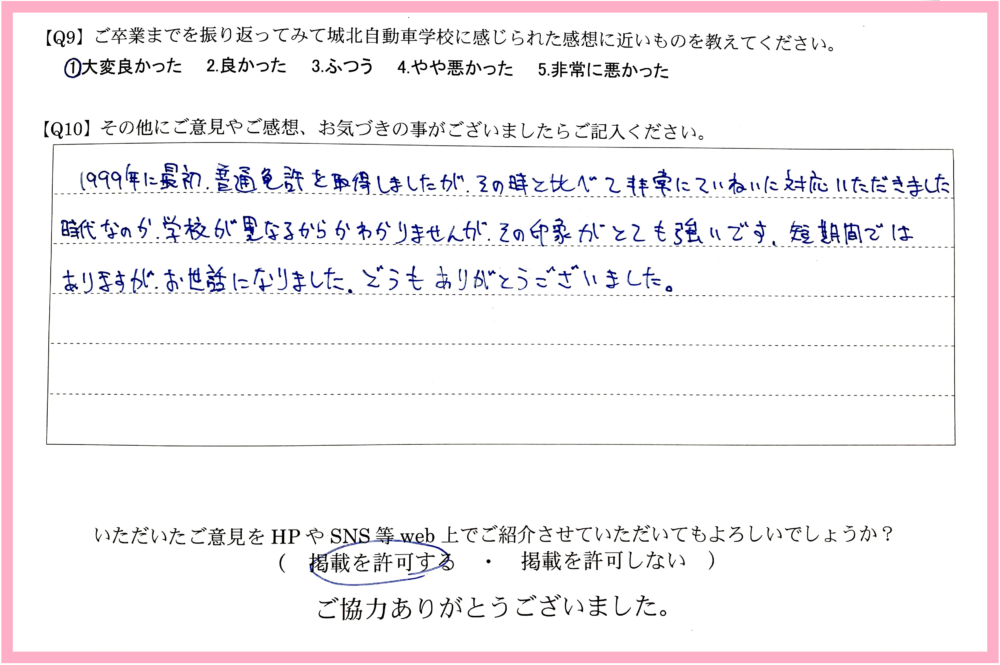 【Q9】ご卒業までを振り返ってみて城北自動車学校に感じられた感想に近いものを教えてください。
①大変良かった 2.良かった 3.ふつう 4.やや悪かった 5.非常に悪かった
【Q10】その他にご意見やご感想、お気づきの事がございましたらご記入ください。
1999年に最初、普通免許を取得しましたが、その時と比べて非常にていねいに対応いただきました
時代なのか、学校が異なるからかわかりませんが、その印象がとても強いです。短期間では
ありますが、お世話になりました。どうもありがとうございました。
いただいたご意見をHPやSNS等web上でご紹介させていただいてもよろしいでしょうか？
( 掲載を許可する ・ 掲載を許可しない )
ご協力ありがとうございました。